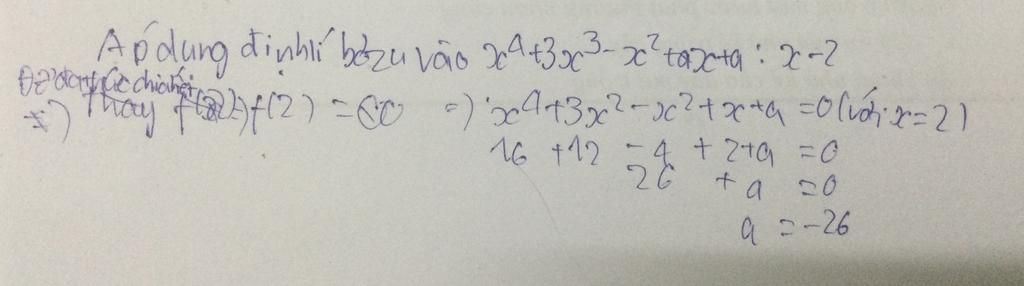 Áp dụng định lí bơzu vào x⁴+3x³-x²+ax+a : x-2
Để đa thức chia hết
thay f(2) = 0 => x⁴+3x²-x²+x+a =0 (với x=2)
16 +12 -4 +2+a =0
26 +a =0
a =-26